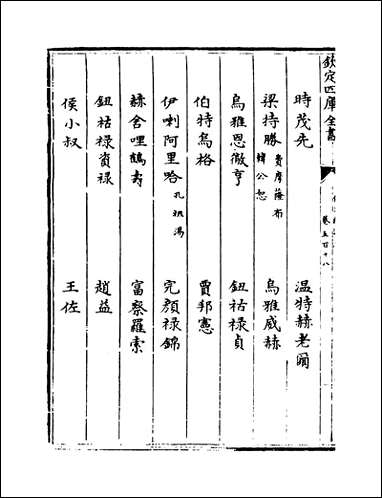 欽定四庫全書
卷五百十八
時茂先
温特赫老圖
梁持勝 費摩薩布 韓公恕
烏雅威赫
烏雅恩徹亨
鈕祜禄貞
伯特烏格
賈邦憲
伊喇阿里哈 孔祖湯
完顔禄錦
赫舍哩鶴夀
富察羅索
鈕祜禄資禄
趙益
侯小叔
王佐